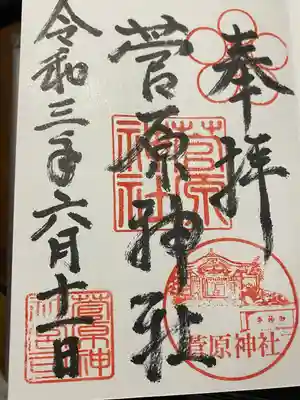 奉拝
菅原神社
菅原神社
菅原神社
令和三年六月十一日